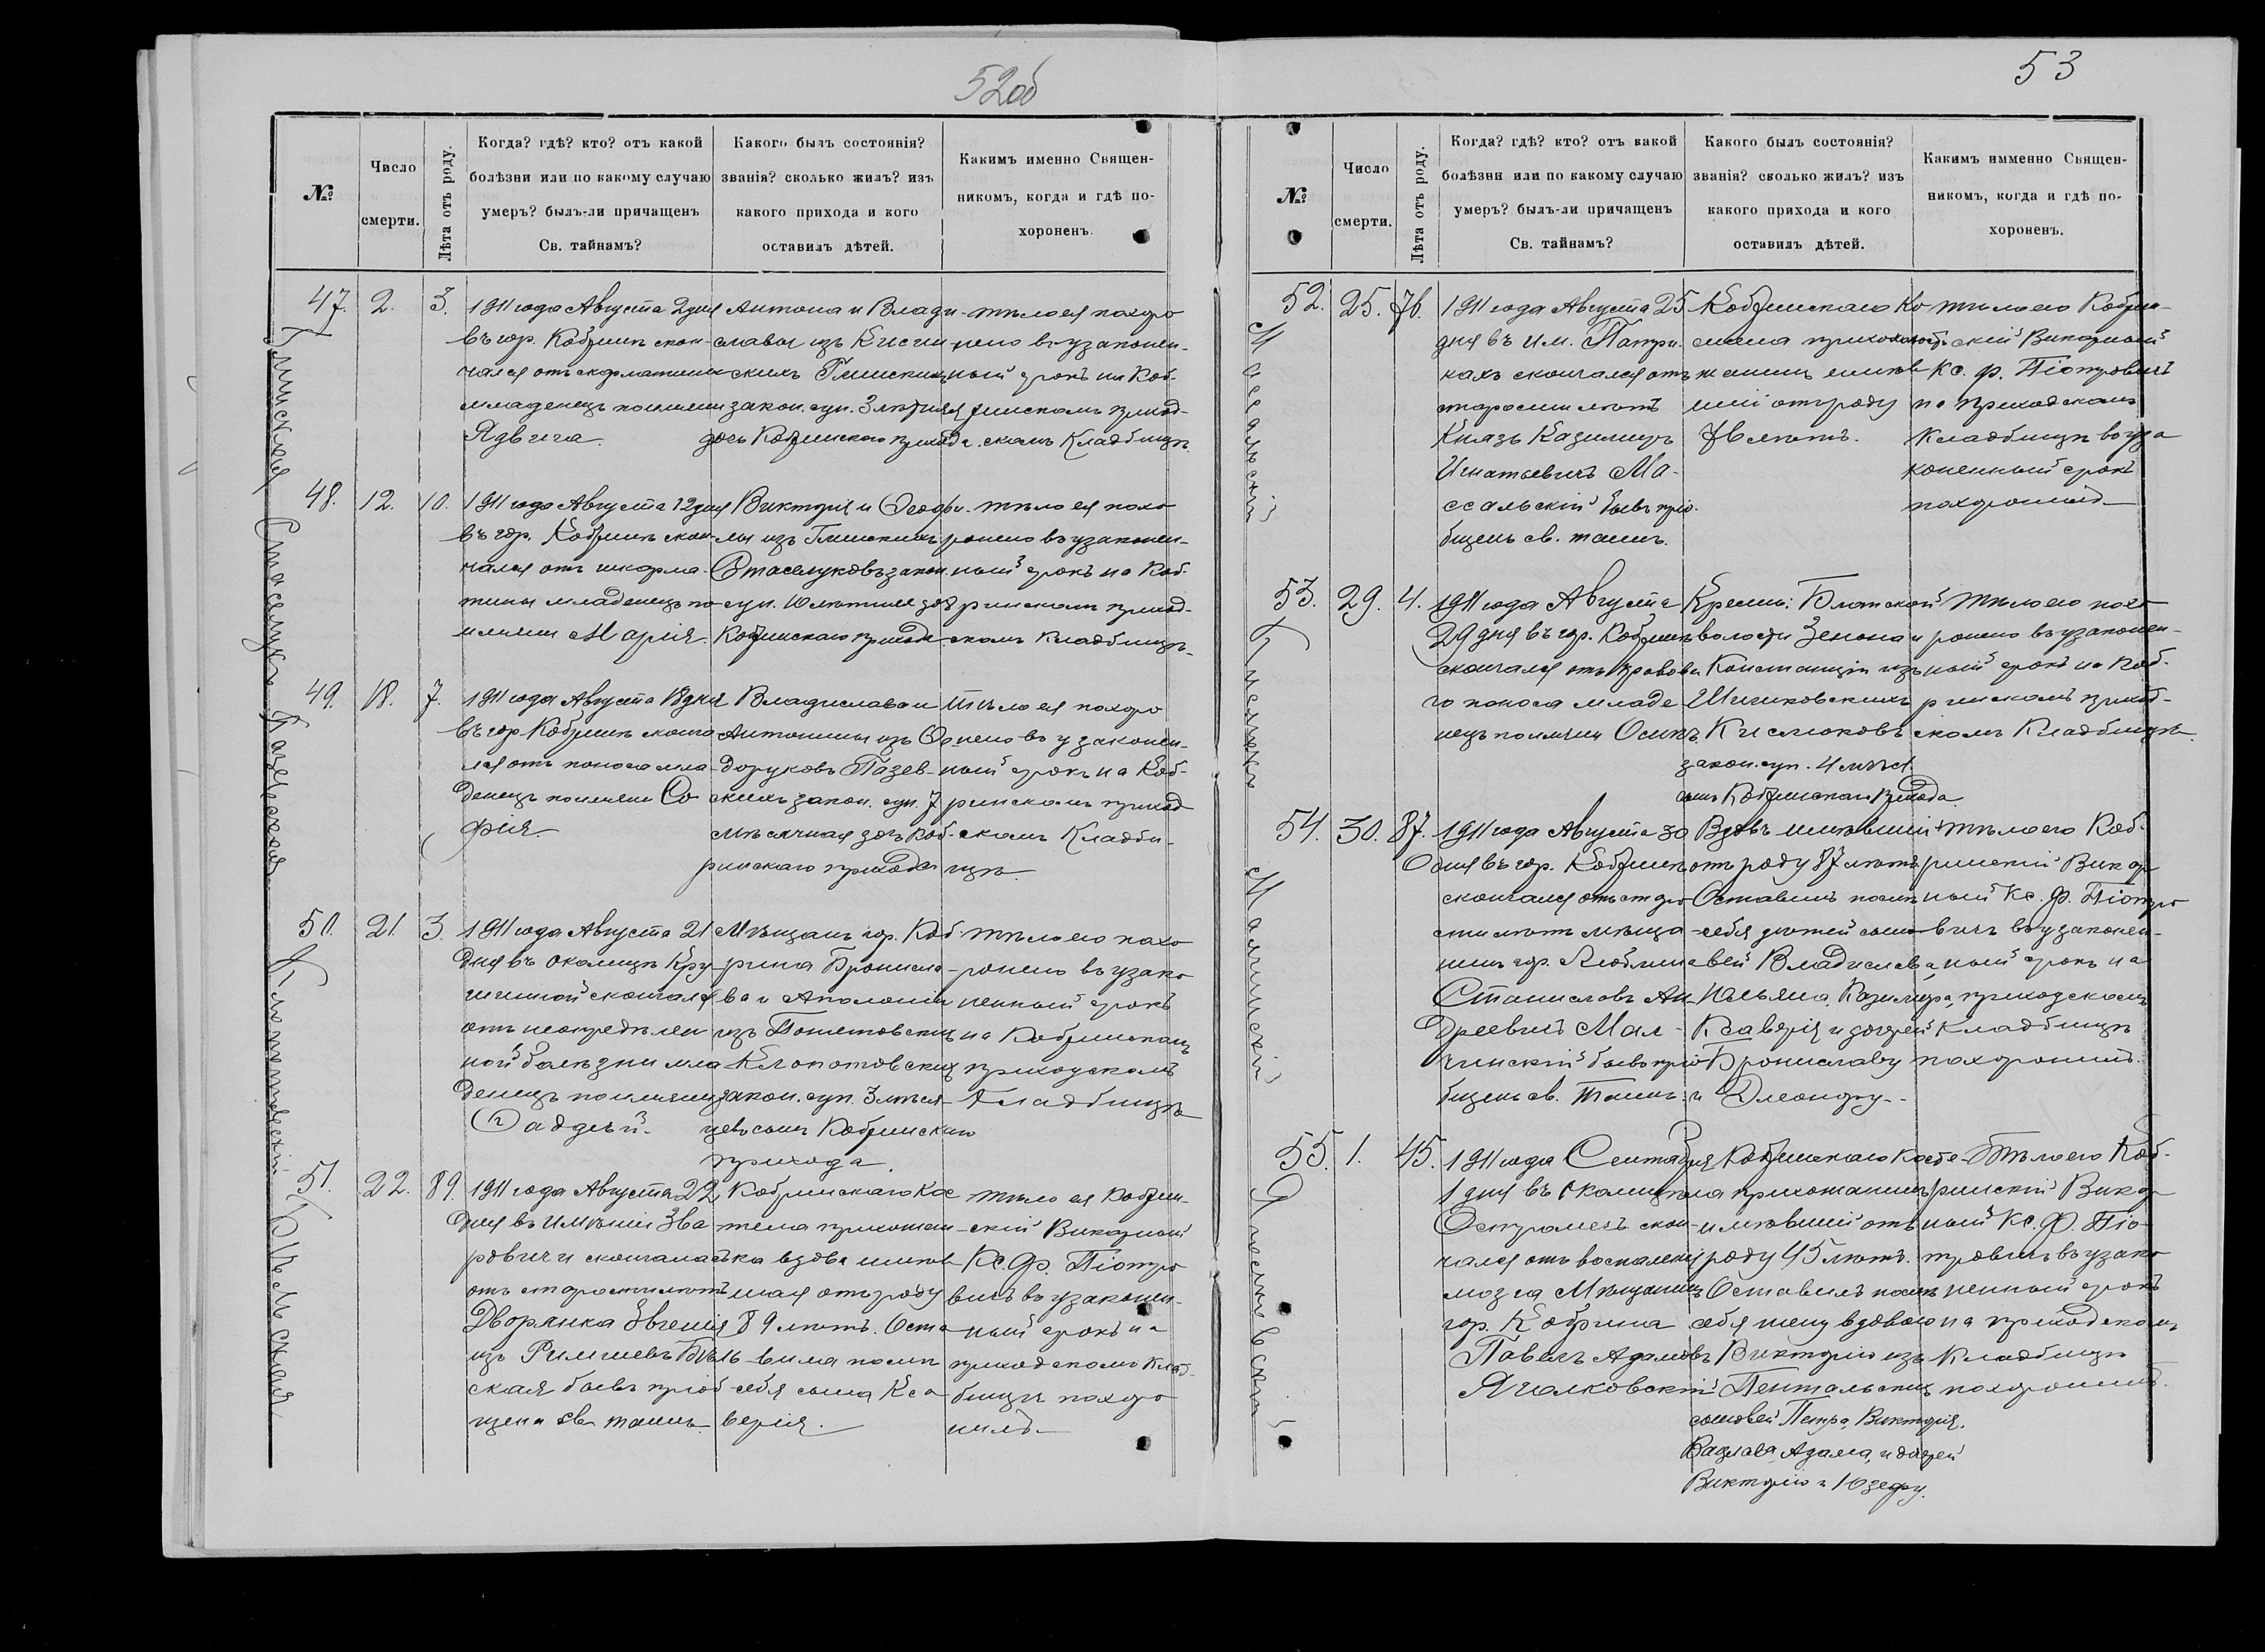 52об
№
Число
смерти.
Лѣта отъ роду.
Когда? гдѣ? кто? отъ какой
болѣзни или по какому случаю
умеръ? былъ-ли причащенъ
Св. тайнамъ?
Какого былъ состоянія?
званія? сколько жилъ? изъ
какого прихода и кого
оставилъ дѣтей.
Какимъ именно Священ-
никомъ, когда и гдѣ по-
хороненъ.
47. 2. 3.
1911 года Августа 2 дня
въ гор. Кобринѣ скон-
чался отъ скарлатины
младенецъ по имени
Ядвига.
Антона и Влади-
славы изъ
Глинскихъ
закон. суп. 3 лѣтняя
дочь Кобринскаго прихода.
тѣло ея похоро
нено въ узаконен-
ный срокъ на Коб-
ринскомъ приход-
скомъ Кладбищѣ.
48. 12. 10.
1911 года Августа 12 дня
въ гор. Кобринѣ скон-
чался отъ шкарла-
тины младенецъ по
имени Марія.
Викторія и Теофи-
лы изъ Глинскихъ
Стасюковъ закон.
суп. 10 лѣтняя доч
Кобринскаго прихода.
тѣло ея похо
ронено въ узаконен-
ный срокъ на Коб-
ринскомъ приход-
скомъ Кладбищѣ.
Стасюкъ
49. 18. 7.
1911 года Августа 18 дня
въ гор. Кобринѣ сконча
лся отъ поноса мла-
денецъ по имени Со
фія.
Владислава и
Антонины изъ Ѳе
доруковъ
закон. суп. 7
мѣсячная доч Коб-
ринскаго прихода
тѣло ея похоро
нено въ узаконен-
ный срокъ на Коб-
ринскомъ приход
скомъ Кладби-
щѣ.
50. 21. 3.
1911 года Августа 21
дня въ околицѣ Кру-
пчицкой скончался
отъ неопредѣлен
ной болѣзни мла
денецъ по имени
Ѳаддей.
Мѣщанъ гор. Коб-
рина Бронисла-
ва и Аполоніи
изъ Понятовскихъ
Клопотовскихъ
закон. суп. 3 мѣся-
цевъ сынъ Кобринскаго
прихода.
тѣло его похо
ронено въ узако
ненный срокъ
на Кобринскомъ
приходскомъ
Кладбищѣ
Клопотовскій
51. 22. 89.
1911 года Августа 22
дня въ имѣніи Зва
ровичи скончалась
отъ старости лѣтъ
Дворянка Евгенія
изъ Бѣль-
ская бывъ пріоб
щена св. таинъ.
Кобринскаго Кос
тела прихожан
ка вдова имѣв
шая отъ роду
89 лѣтъ. Оста
вила послѣ
себя сына Кса
верія.
тѣло ея Кобрин-
скій Викарный
Кс. Ф. Піотро
вичъ въ узаконен-
ный срокъ на
приходскомъ Клад-
бищѣ похоро
нилъ
Бѣльская
53
№
Число
смерти.
Лѣта отъ роду.
Когда? гдѣ? кто? отъ какой
болѣзни или по какому случаю
умеръ? былъ-ли причащенъ
Св. тайнамъ?
Какого былъ состоянія?
званія? сколько жилъ? изъ
какого прихода и кого
оставилъ дѣтей.
Какимъ имменно Священ-
никомъ, когда и гдѣ по-
хороненъ.
52. 25. 76.
Массальскій
1911 года Августа 25
дня въ им. Патри-
кахъ скончался отъ
старости лѣтъ
Князь Казимиръ
Игнатьевичъ Ма-
ссальскій бывъ прiо-
бщенъ св. таинъ.
Кобринскаго Ко
стела прихо
жанинъ имѣв
шій отъ роду
76 лѣтъ.
тѣло его Кобрин-
скій Викарный
Кс. Ф. Піотровичъ
на приходскомъ
Кладбищѣ въ уза
коненный срокъ
похоронилъ
53. 29. 4.
1911 года Августа
29 дня въ гор. Кобринѣ
скончался отъ кроваваг
го поноса младе
нецъ по имени Осипъ.
Крестьян.
волости Зенона и
Констанціи изъ
Шишковскихъ
Кислюковъ
закон. суп. 4 мѣс.
сынъ Кобринскаго прихода
тѣло его похо
ронено въ узаконен-
ный срокъ на Коб-
ринскомъ приход-
скомъ Кладбищѣ.
54. 30. 87.
Малчинскій
1911 года Августа 30
дня въ гор. Кобринѣ
скончался отъ старо
сти лѣтъ мѣща-
нинъ гор. Люблина
Станиславъ Ан
дреевичъ Мал-
чинскій бывъ пріо
бщенъ св. Таинъ.
Вдовъ имѣвшій
отъ роду 87 лѣтъ
Оставилъ послѣ
себя дѣтей сыно-
вей Владислава,
Юльяна, Казимира,
Ксаверія и дочерей
Брониславу
и Элеонору.
тѣло его Коб-
ринскій Викар
ный Кс. Ф. Піотро
вичъ въ узаконен-
ный срокъ на
приходскомъ
Кладбищѣ
похоронилъ.
55. 1. 45.
Ячолковскій
1911 года Сентября
1 дня въ околицѣ
Остромечъ скон-
чался отъ воспаленія
мозга Мѣщанинъ
гор. Кобрина
Павелъ Адамовъ
Ячолковскій
Кобринскаго Косте-
ла прихожанинъ
имѣвшій отъ
роду 45 лѣтъ.
Оставилъ послѣ
себя жену вдовою
Викторію изъ
Пентальскихъ
сыновей Петра, Викторія,
Вацлава, Адама, и дочерей
Викторію и Юзефу.
Тѣло его Коб-
ринскій Викар
ный Кс. Ф. Піо-
тровичъ въ узако
ненный срокъ
на приходскомъ
Кладбищѣ
похоронилъ.